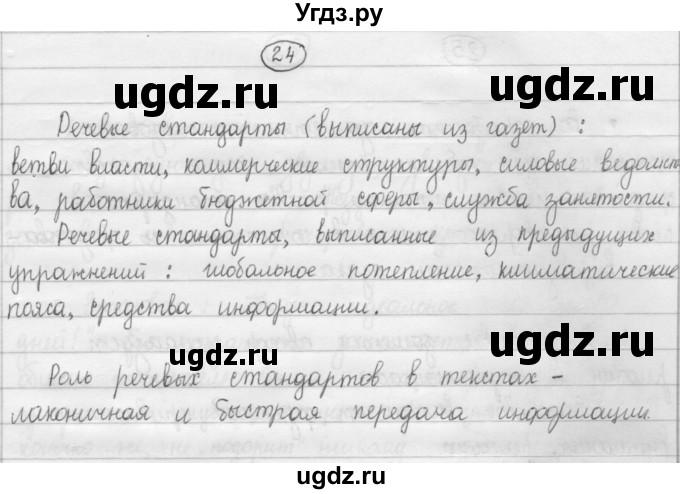 Угдз.ру
24
ugdz.ru ugdz.ru
Речевые стандарты (выписаны из газет) :
ветви власти, коммерческие структуры, силовые ведомст
ва, работники бюджетной сферы, служба занятости.
Речевые стандарты, выписанные из предыдущих
упражнений : глобальное потепление, климатические
пояса, средства информации.
ugdz.ru ugdz.ru
Роль речевых стандартов в текстах –
лаконичная и быстрая передача информации.
ugdz.ru